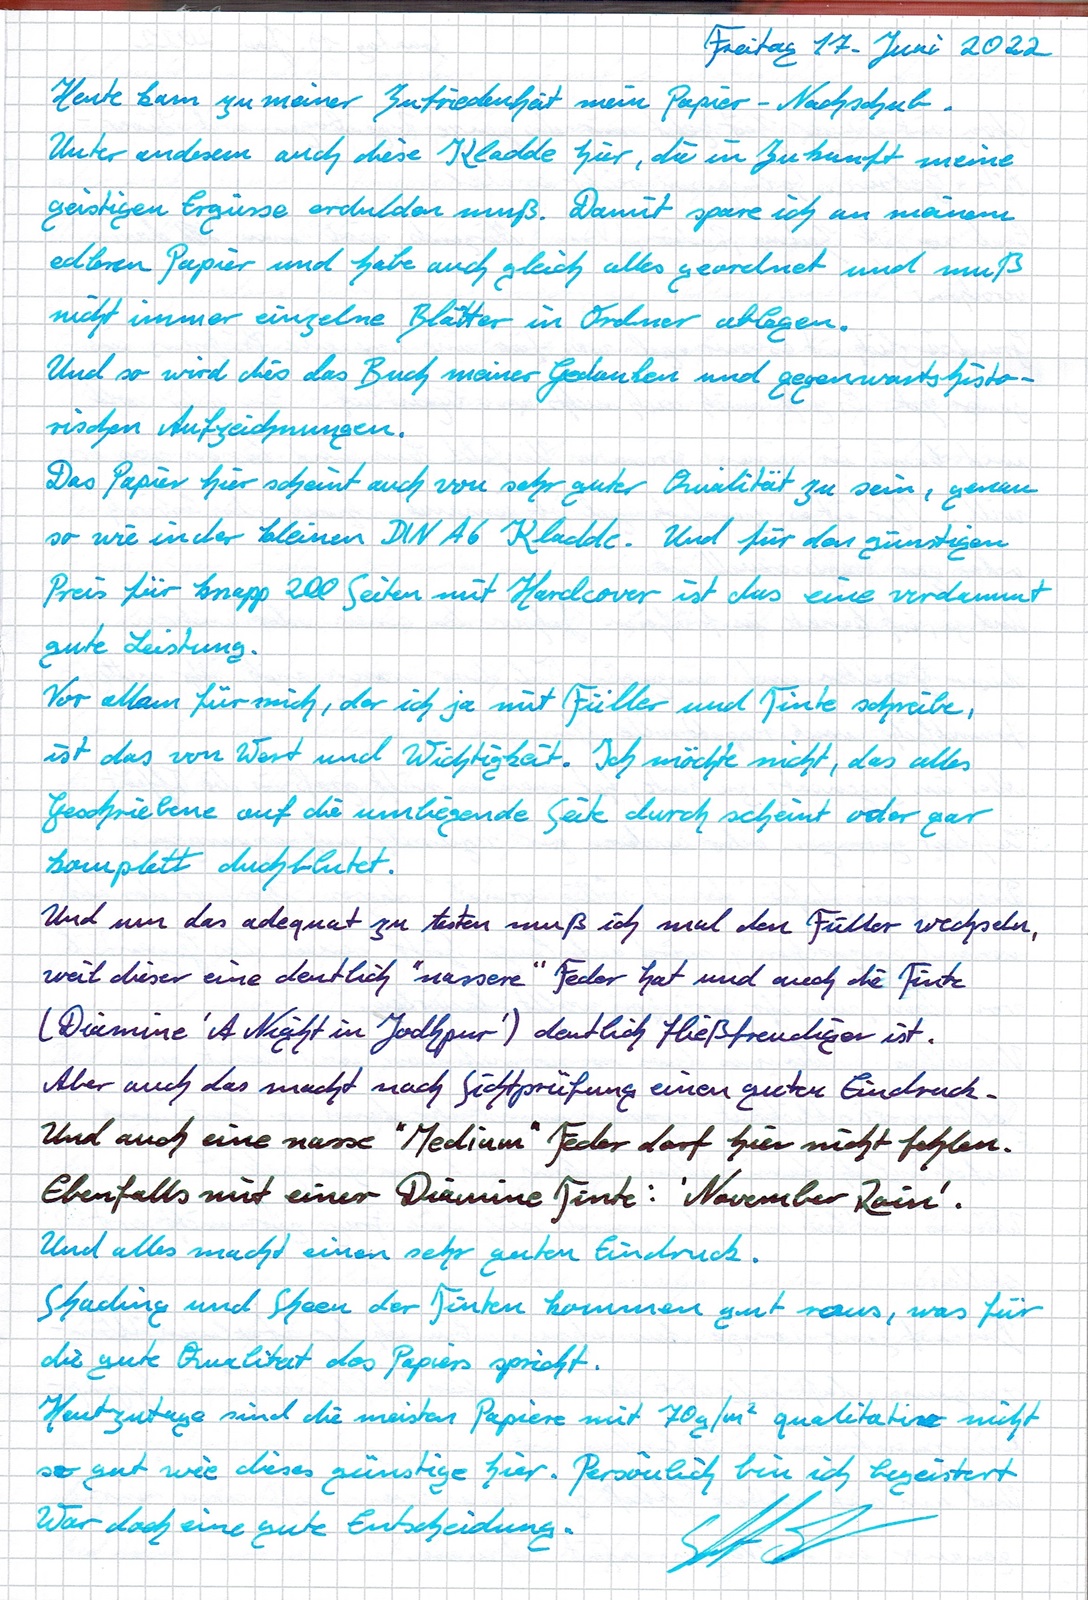 Freitag 17. Juni 2022
Heute kam zu meiner Zufriedenheit mein Papier-Nachschub.
Unter anderem auch diese Kladde hier, die in Zukunft meine
geistigen Ergüsse erdulden muß. Damit spare ich an meinem
edleren Papier und habe auch gleich alles geordnet und muß
nicht immer einzelne Blätter in Ordner ablegen.
Und so wird dies das Buch meiner Gedanken und gegenwartshisto-
rischen Aufzeichnungen.
Das Papier hier scheint auch von sehr guter Qualität zu sein, genau
so wie in der kleinen DIN A6 Kladde. Und für den günstigen
Preis für knapp 200 Seiten mit Hardcover ist das eine verdammt
gute Leistung.
Vor allem für mich, der ich ja mit Füller und Tinte schreibe,
ist das von Wert und Wichtigkeit. Ich möchte nicht, das alles
Geschriebene auf die umliegende Seite durch scheint oder gar
komplett duchblutet.
Und um das adequat zu testen muß ich mal den Füller wechseln,
weil dieser eine deutlich "nassere" Feder hat und auch die Tinte
(Diamine 'A Night in Jodhpur') deutlich fließfreudiger ist.
Aber auch das macht nach Sichtprüfung einen guten Eindruck.
Und auch eine nasse "Medium" Feder darf hier nicht fehlen.
Ebenfalls mit einer Diamine Tinte: 'November Rain'.
Und alles macht einen sehr guten Eindruck.
Shading und Sheen der Tinten kommen gut raus, was für
die gute Qualität des Papiers spricht.
Heutzutage sind die meisten Papiere mit 70g/m² qualitative nicht
so gut wie dieses günstige hier. Persönlich bin ich begeistert
War doch eine gute Entscheidung.